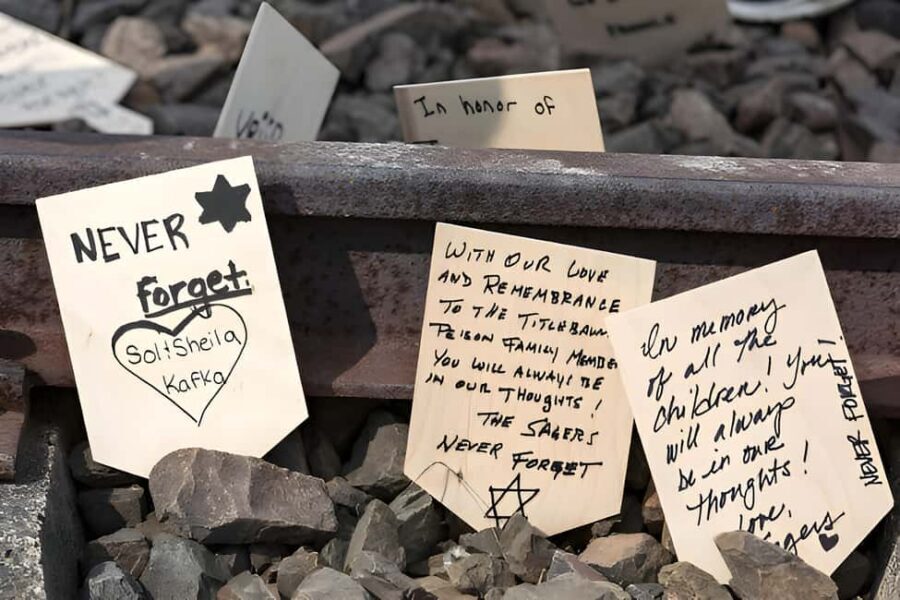 In honor of
NEVER
Forget.
Sol+Sheila
Kafka
WITH OUR LOVE
AND REMEMBRANCE
TO THE
FAMILY
YOU WILL ALWAYS BE
IN OUR THOUGHTS!
THE SAGERS
NEVER FORGET
In memory
of all the
children! You
will always
be in our
thoughts!
Love,
NEVER FORGET!